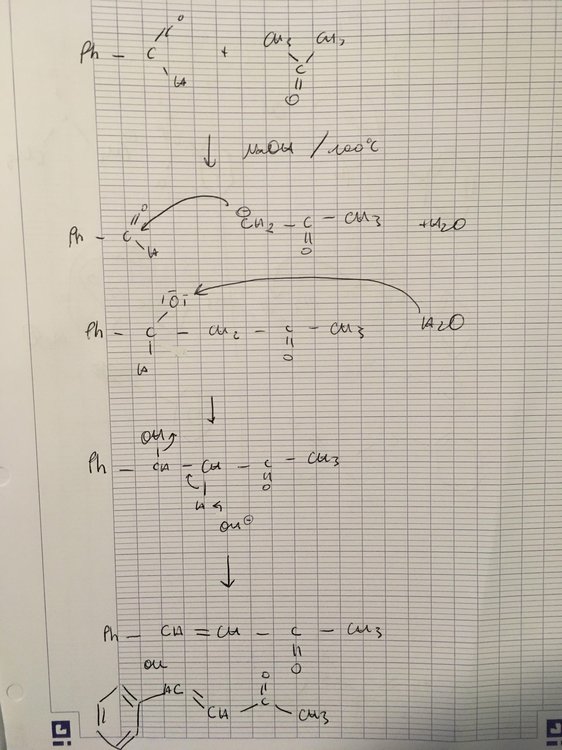 Ph - C = O H + CH3 CH3 C = O
NaOH / 100°C
Ph - C = O H ⊖CH2 - C = O - CH3 + H2O
|Ō|⁻
Ph - C - CH2 - C - CH3 H2O
H O
OH
Ph - CH - CH - C - CH3
H O
OH⊖
Ph - CH = CH - C - CH3
O
ou
O
HC = CH - C - CH3